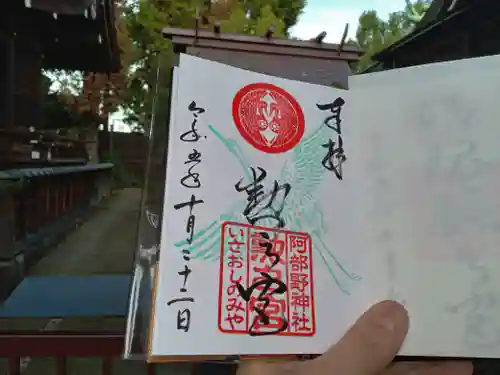 奉拝
勲之宮
令和五年十月二十二日
阿部野神社
いさおしのみや